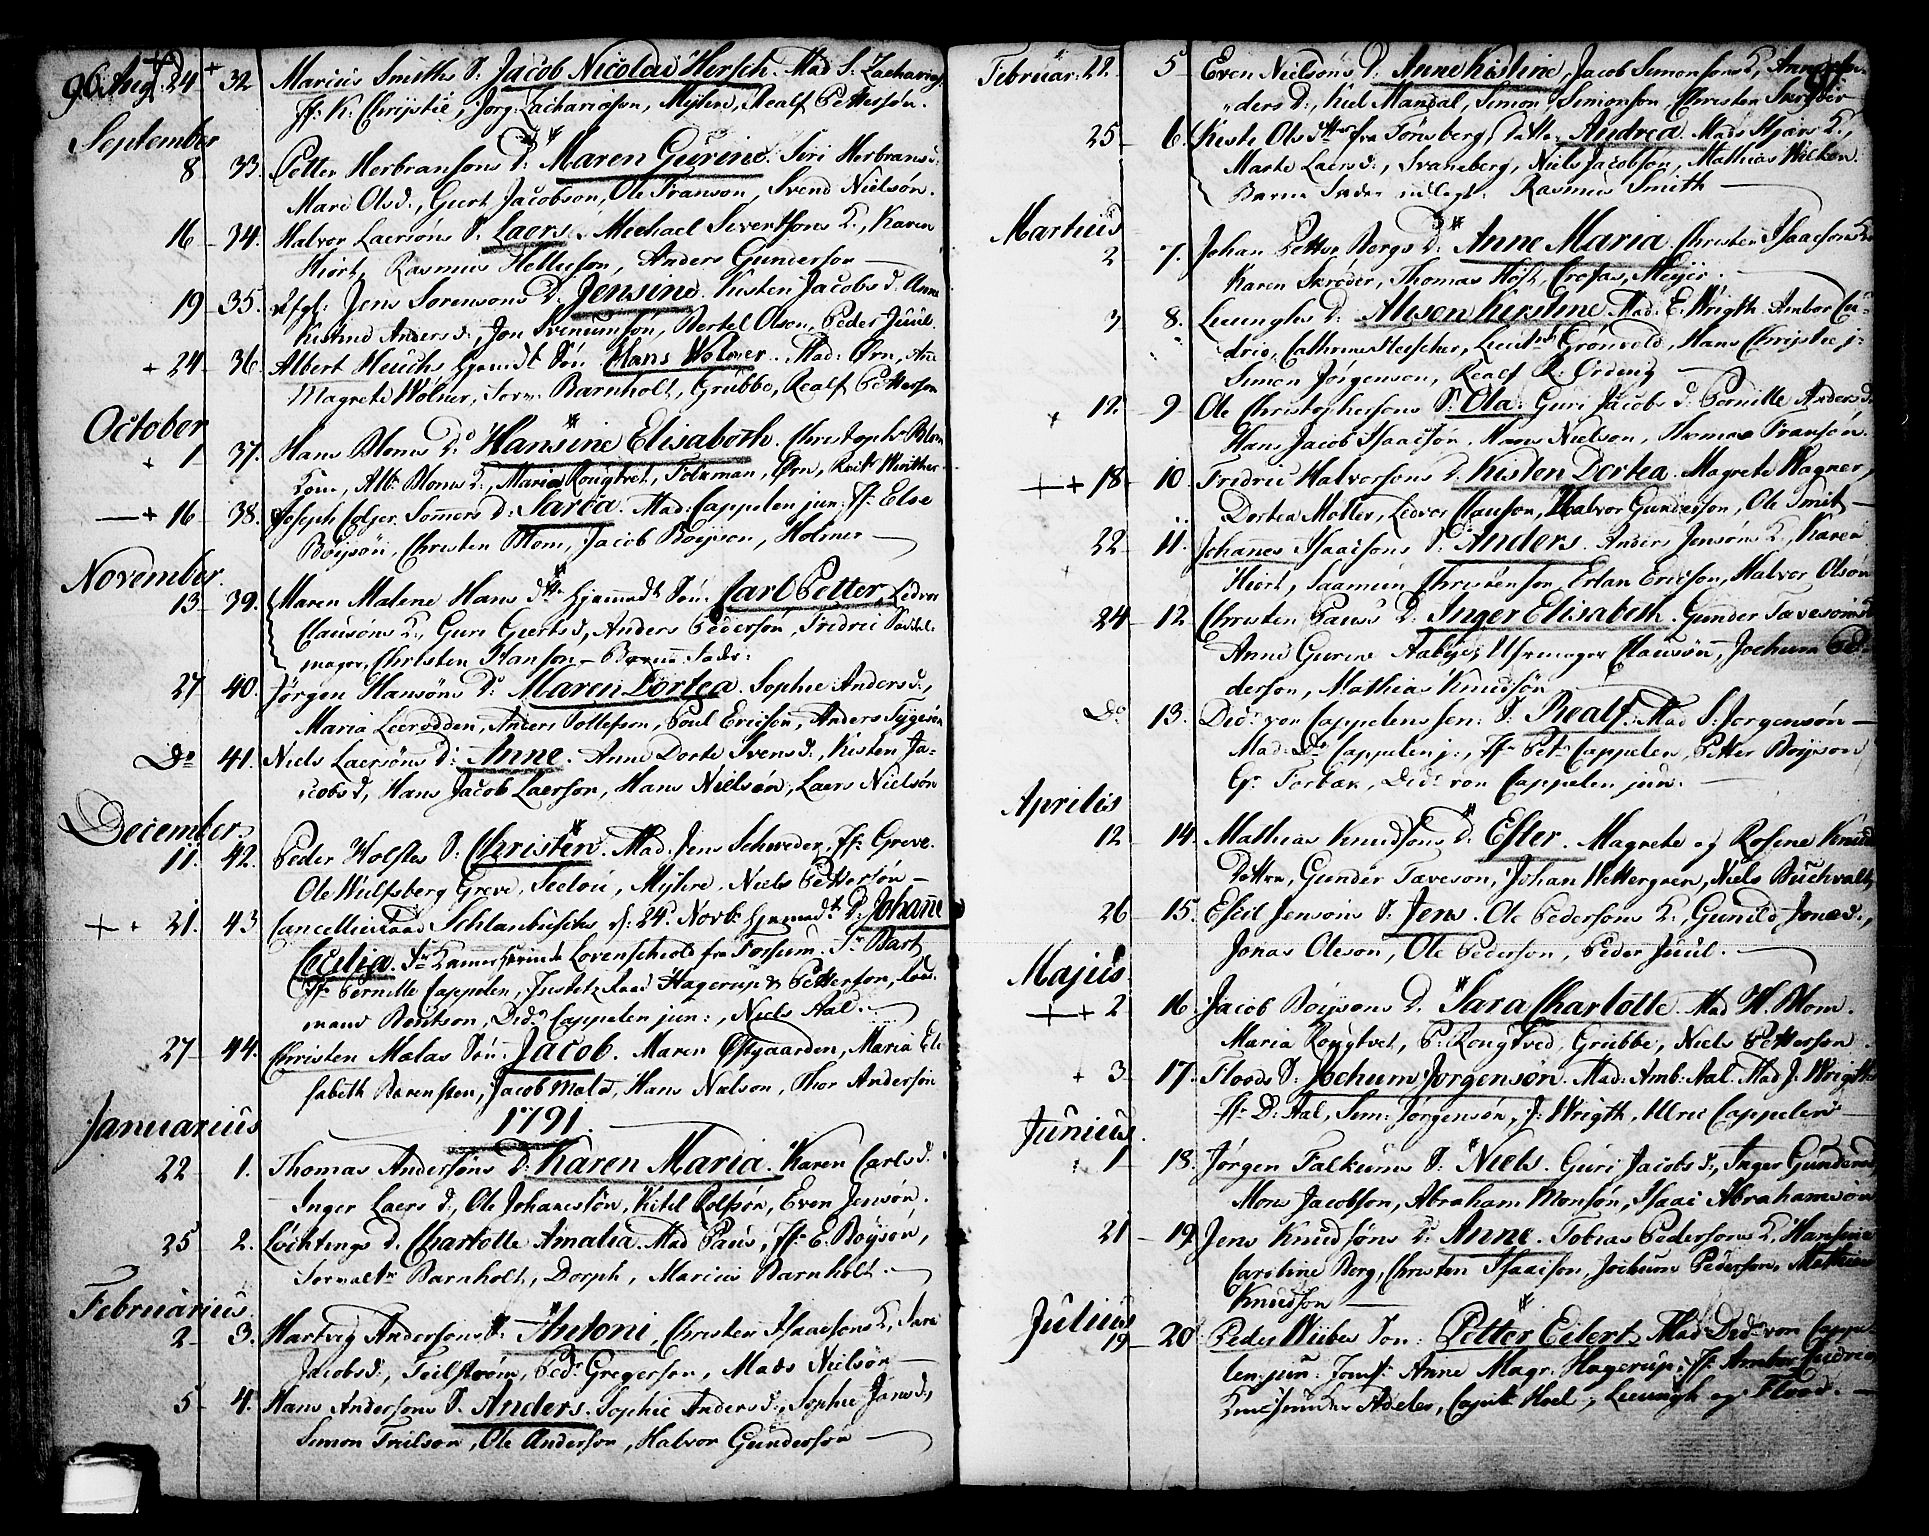 96. Aug. 24 + 32 Marius Smiths S: Jacob Nicolai Hersch. Mad S. Zacharias,
Fr. K. Christie, Jørg. Zachariasson, Myhre, Realf Pettersøn.
September
8 33. Petter Herbransons D: Maren Gurine. Siri Herbransd.
Mari Olsd., Giert Jacobson, Ole Franson, Svend Nielsøn.
16 34. Halvor Laersøns S. Laers. Michael Sivertsons K., Karen
Hiort, Rasmus Hellesson, Anders Gunderson
19 35. Jens Sørensons D. Jensine. Kisten Jacobs d. Anne
Kistine Andersd., Jon Svenumsøn, Bertel Olson, Peder Juul.
+ 24 36. Albert Heuchs hjemdt Søn. Hans Wolmer. Mad: Ørn,
Magrete Wolner, Barnholt, Grubbe, Realf Petterson
October
+ 1 37. Hans Bloms D. Hansine Elisabeth. Christoph. Blom
Kone, Alb. Bloms K., Maria Rougtvet, Foltzman, Ørn,
+ 16 38. Joseph Coljer Somers d: Sarča. Mad: Cappelen jun: Fr. Else
Boijsøn, Christen Blom, Jacob Boijson, Holmer
November.
13 39. Maren Malene Hans dtr hjemdt Søn. Carl Petter, Ledvor
Clausøns K., Guri Giertsd, Anders Pederson, Fridric Saddel-
mager, Christen Hanson
27 40. Jørgen Hansøns D. Maren Dortea. Sophie Andersd.,
Maria Leerodden, Anders Tollefson, Poul Ericson, Anders Tygeson
Do 41. Niels Laersøns d: Anne. Anne Dorte Svensd., Kisten Ja-
cobsd, Hans Jacob Laerson, Hans Nielsøn, Laers Nielsøn
December.
11. 42. Peder Holstes S: Christen. Mad. Jens Schweder, Fr. Greve.
Ole Wulfsberg Greve, Myhre, Niels Pettersøn
+ + 21. 43 Cancelliraad Schlanbuschs f: 24. Novb. hjemdt D. Johanne
Cecilia. Fr. Kammerherrinde Løvenschiold fra Fossum. Fr. Bart,
Fr. Pernille Cappelen, Justitz Raad Hagerup & Petterson,
Bentson, Did. Cappelen jun:, Niels Aal.
27 44. Christen Mælas Søn. Jacob. Maren Østgaarden, Maria Eli-
sabeth Barensten, Jacob Mæla, Hans Nielson, Thor Andersøn
Januarius 1791.
22 1. Thomas Andersøns D. Karen Maria. Karen Carlsd.
Inger Laersd., Ole Johanesson, Kitel Rolfsøn, Even Jensøn.
25 2. Løchtings d. Charlotte Amalia. Mad Paus, Fr. E. Boijsøn,
Barnholt, Dorph, Marius Barnholt.
Februarius
2 3. Hartvig Andersons S. Antoni, Christen Isaacsons K, Siri
Jacobsd., Ped. Gregerson, Mads Nielsøn
5 4. Hans Andersons S. Anders. Sophie Andersd., Sophie Jansd.,
Simon Trulson, Ole Anderson, Halvor Gunderson
Februar: 22. 5 Even Nielsons D. Anne Kistine, Jacob Simonsons K,
ders d:, Kiel Mandal, Simon Simonson, Christen Skrøder
25 6. Kiste Olsdtter fra Tønsberg, Datter Andrea. Mads Hjørs K.,
Marte Laersd., Svaneberg, Niels Jacobson, Mathias Wilken.
Barne Fader udlegt Rasmus Smith
Martius
2 7. Johan Petter Bergs D. Anne Maria. Christen Isaacsons K
Karen Skrøder, Thomas Høst, Crofas, Meijer.
3 8. Leunghs D: Alison Kirstine. Mad: E. Wrigth. Ambor Cu-
drio, Cathrine Fleischer, Lieutnt. Grønvold, Hans Christie j:
Simon Jørgenson, Realf R. Ording
+ 12 9 Ole Christophersons S. Ola. Guri Jacobsd: Pernille Andersd.
Hans Jacob Isaacsøn, Hans Nielson, Thomas Fransøn.
+ + 18 10 Fridric Halvorsons D. Kisten Dortea. Magrete Wagner,
Dortea Møller, Ledvor Clauson, Halvor Gunderson, Ole Smit
22 11. Johannes Isaacsons S. Anders. Anders Jensøns K, Karen
Hiort, Saamun Christenson, Erlan Ericson, Halvor Olsøn
24 12. Christen Paus's D. Inger Elisabeth. Gunder Tavesons K
Anne Gurine Aabye, Clausøn, Jochum Pe-
derson, Mathias Knudsøn
Do 13. Did. von Cappelens Sen: S: Realf. Mad S: Jorgensøn
Mad: Do Cappelen j:, Fr. Pet. Cappelen, Petter Boijson
G. Forban, Did. von Cappelen jun:
Aprilis
12 14. Mathias Knudsons d: Ester. Magrete og Rosene Knud
Døttre, Gunder Taveson, Johan Wettergren, Niels Buchvaltz
26 15. Eschil Jensøns S. Jens. Ole Pedersons K., Gunild Jonæd.,
Jonas Oleson, Ole Pederson, Peder Juul.
Majus
+ + 2 16. Jacob Boijsons D. Sara Charlotte. Mad H. Blom.
Maria Rougtvet, P. Rougtved, Grubbe, Niels Petterson.
+ 3 17. Floods S: Jochum Jorgensøn. Mad: Amb: Aal. Mad J. Wrigth
Fr. D: Aal, Sim: Jørgensøn, J. Wrigth, Ulric Cappelen
Junius.
1 18. Jørgen Falkums S. Niels. Guri Jacobsd., Inger Gundersd
Mons Jacobson, Abraham Monsøn, Isaac Abrahamsøn
21 19. Jens Knudsøns D. Anne. Tobias Pedersons K, Hansine
Caroline Borg, Christen Isaacson, Jochum Pederson, Mathias
Knudson
Julius
19 20 Peder Weibes Søn: Petter Eilert. Mad: Did. von Cappe-
len jun: Jomf. Anne Magr. Hagerup, Fr. Ambor Cudrio,
Adeler, Capit. Hoel, Leungh og Flood.